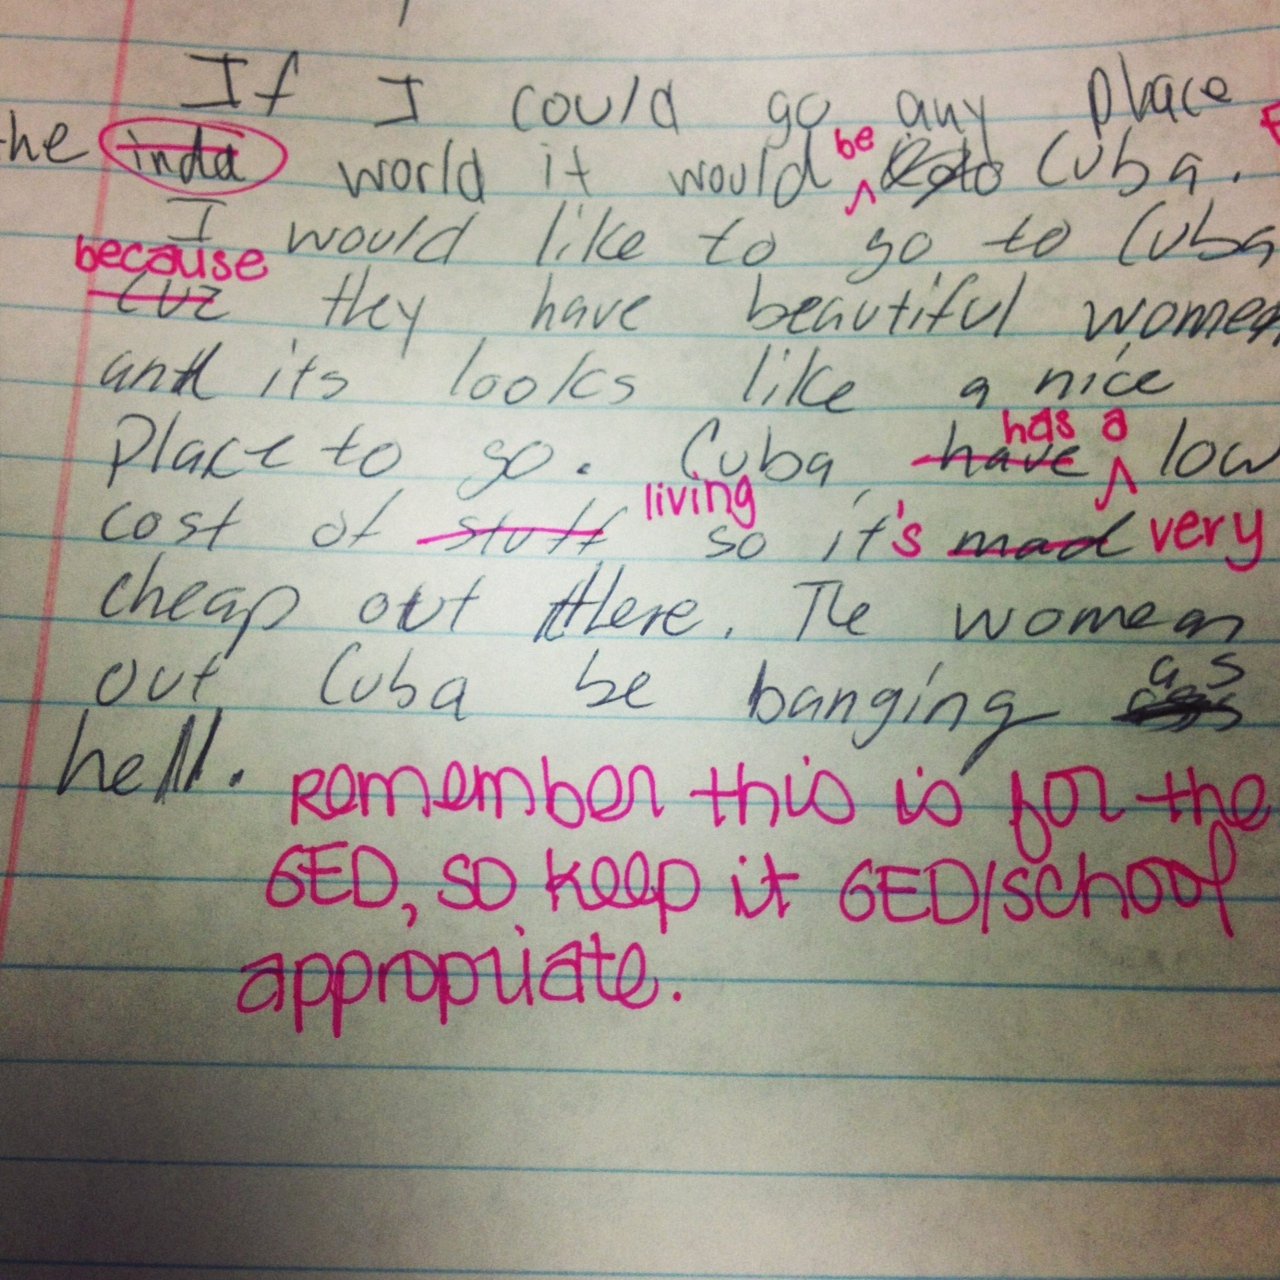 If I could go any place
the inda world it would be Cuba.
I would like to go to Cuba
because
cuz they have beautiful women
and its looks like a nice
has a
place to go. Cuba, have low
living
cost of stuff so it's mad very
cheap out there. The women
as
out Cuba be banging
hell. Remember this is for the
GED, so keep it GED/school
appropriate.